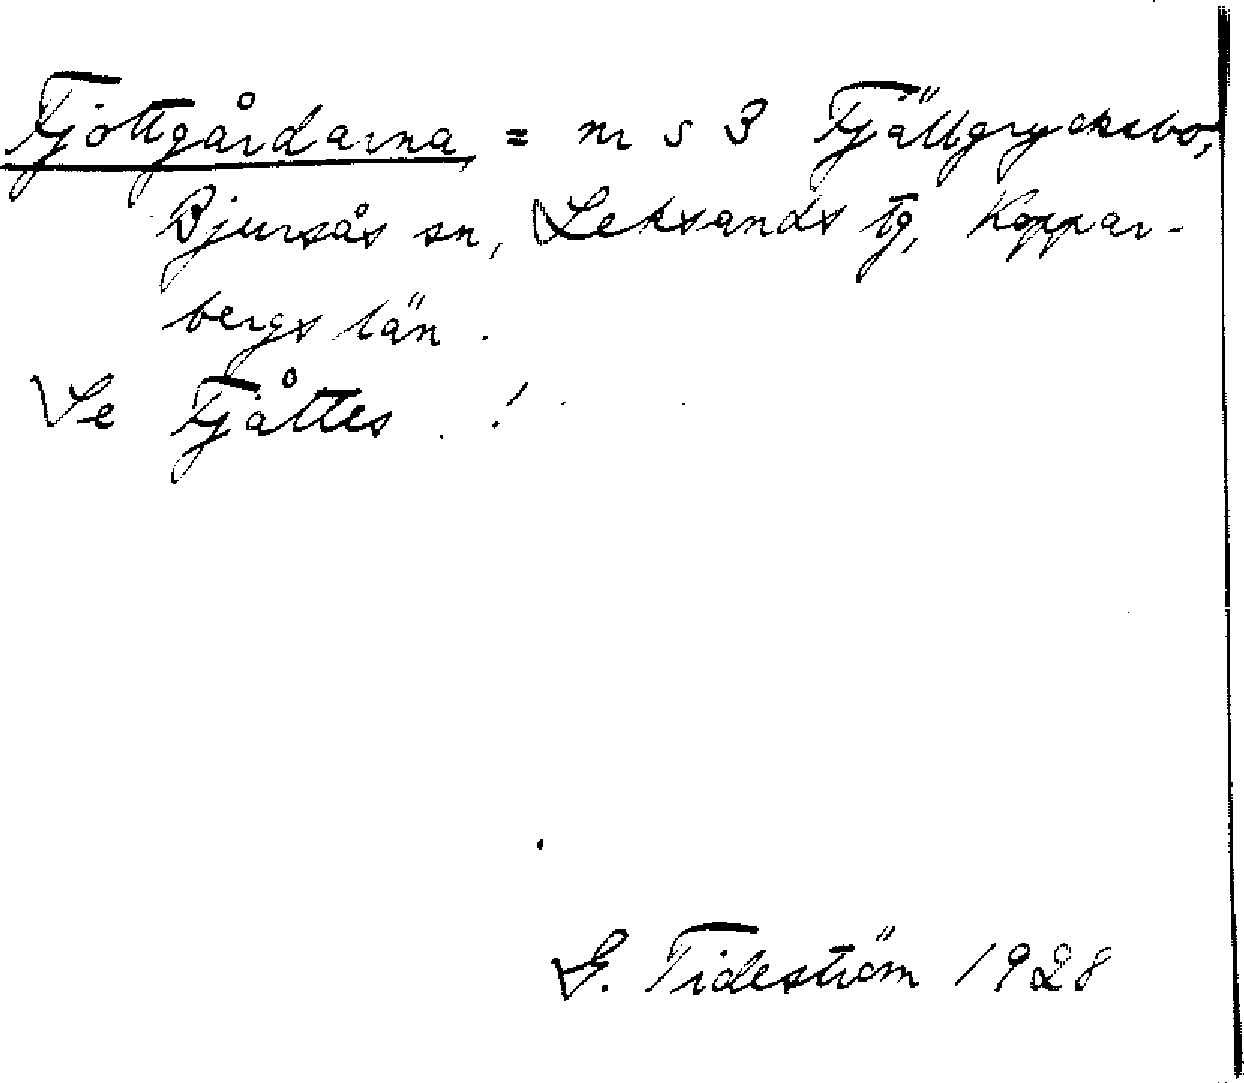 Fjottgårdarna = nr s 3 Fjällgrycksbo,
Bjursås sn, Leksands tg, Koppar-
bergs län.
Se Fjåttes !
G. Tideström 1928